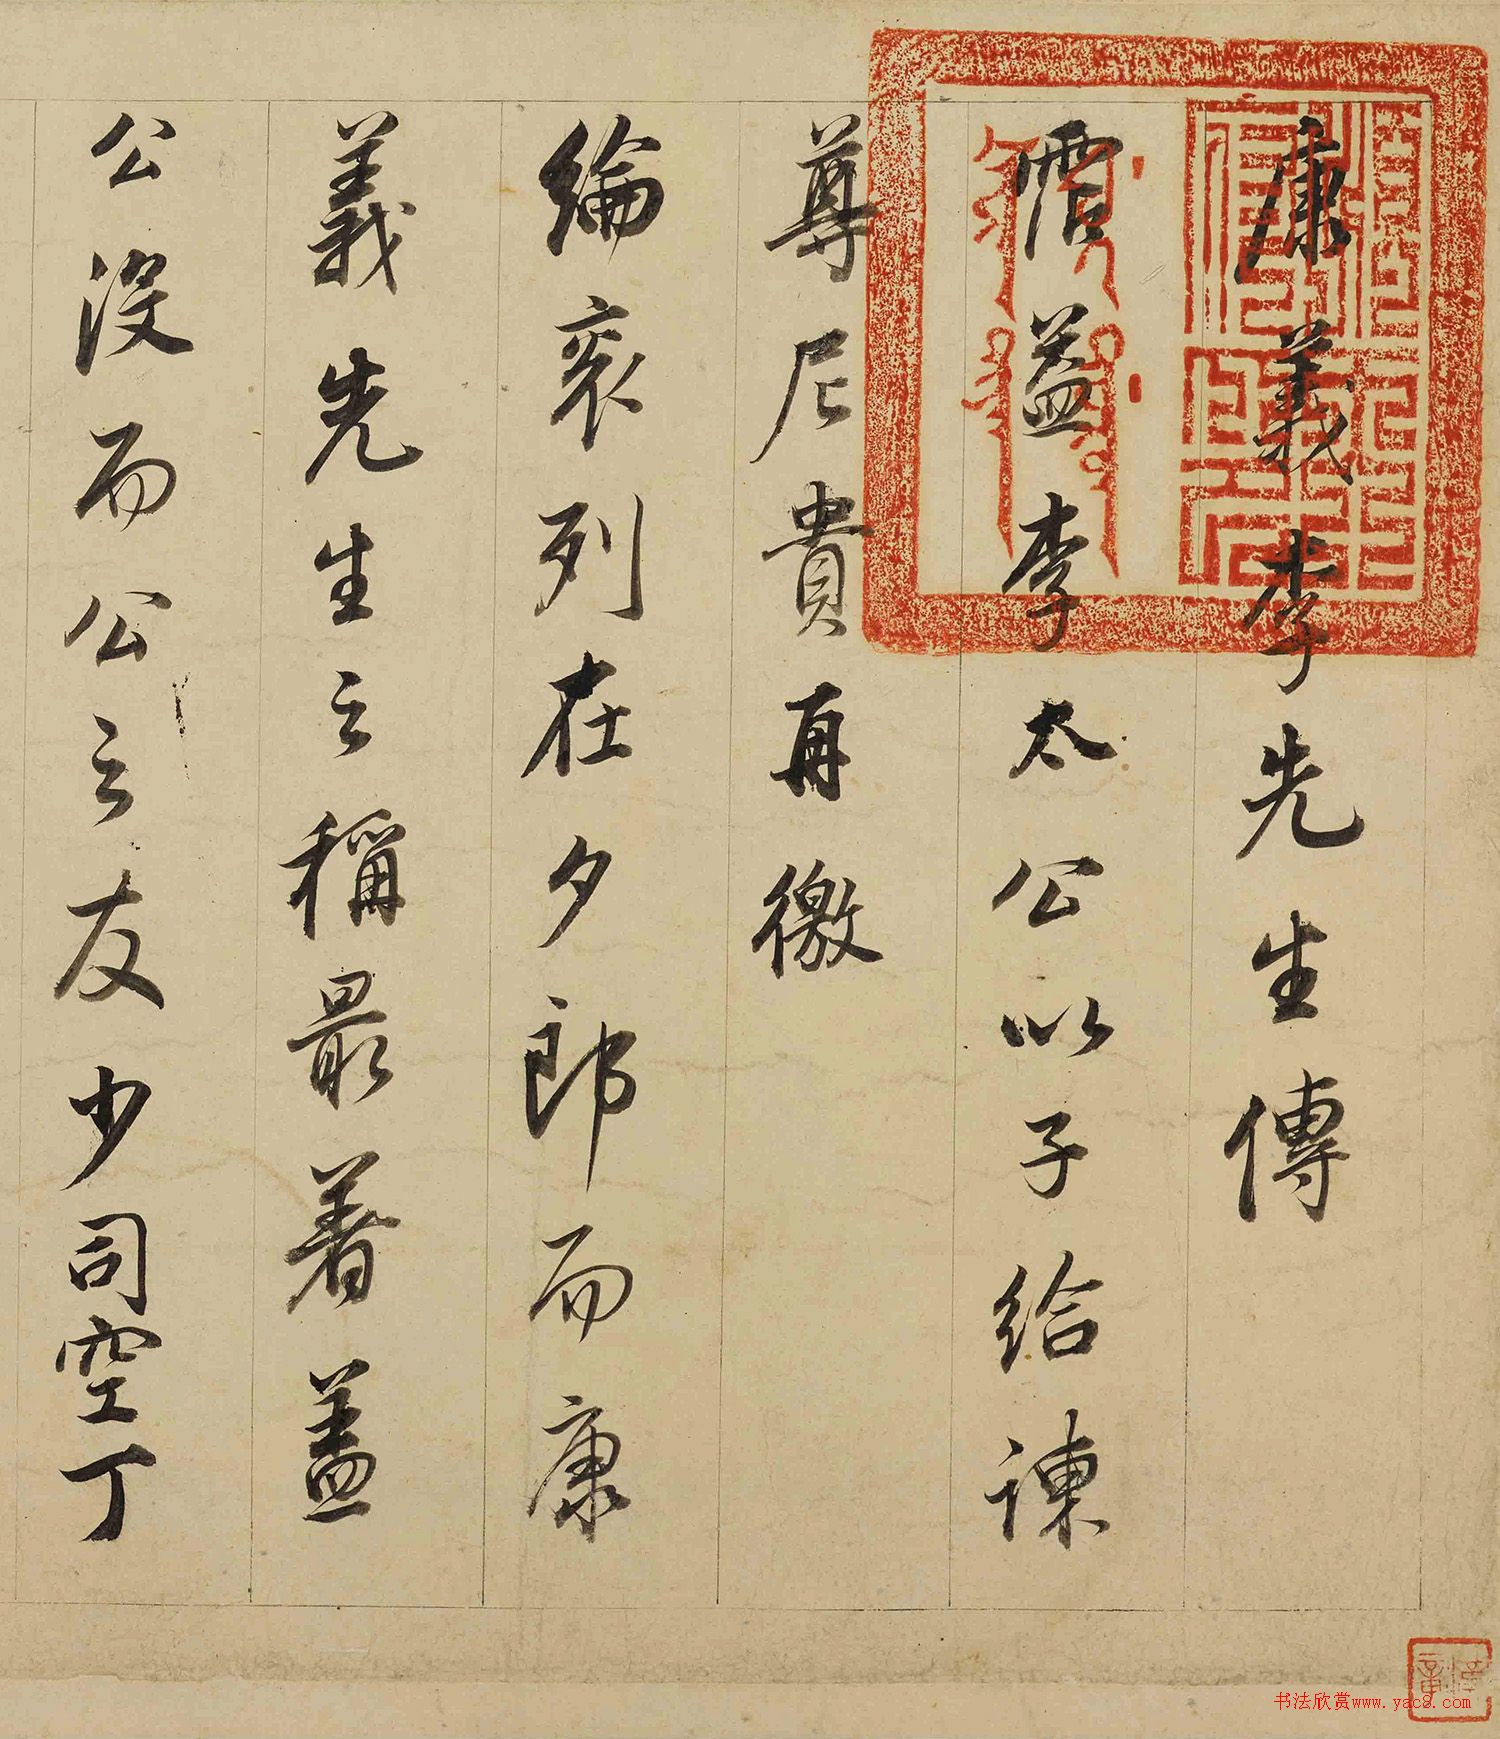 康義李先生傳
霑益李太公以子給諫
尊尼貴再徼
綸衮列在夕郎而康
義先生之稱最著蓋
公沒而公之友少司空丁
书法欣赏www.yac8.com